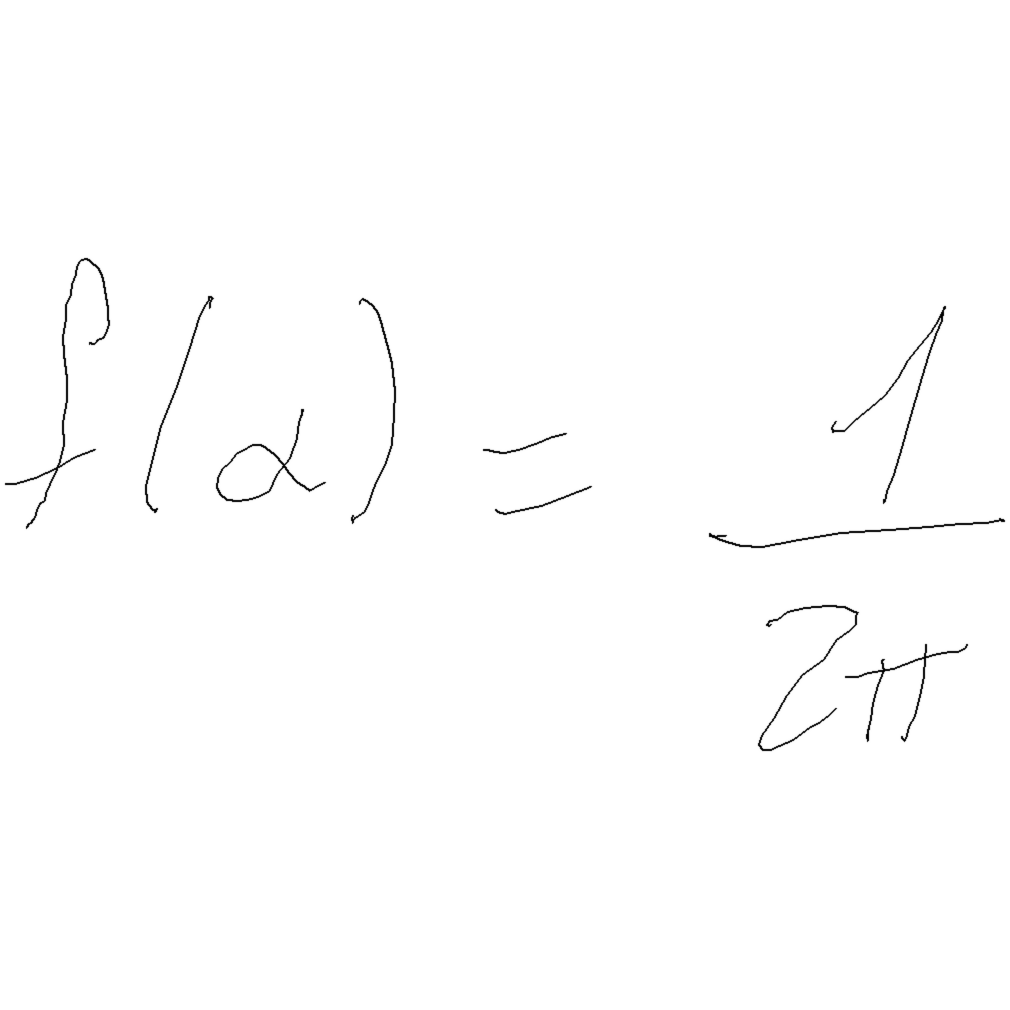 f(α) = \frac{1}{2π}